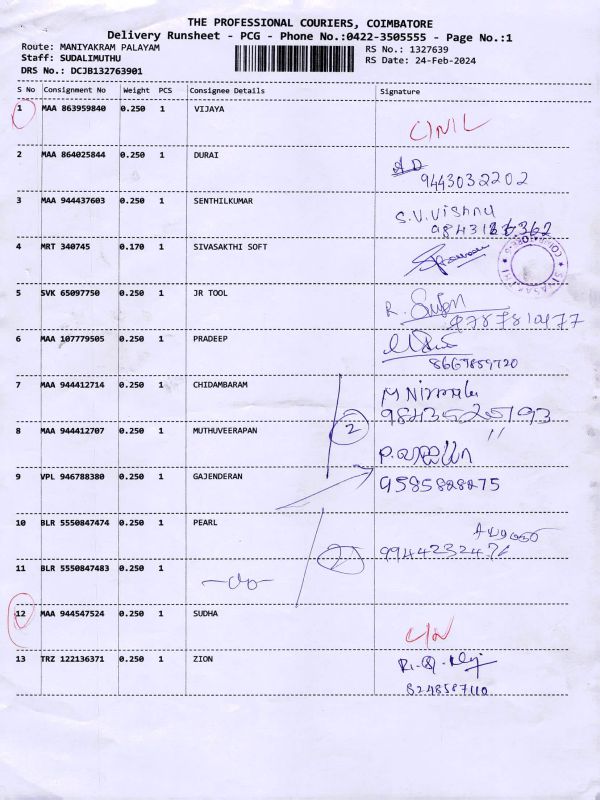 THE PROFESSIONAL COURIERS, COIMBATORE
Delivery Runsheet - PCG - Phone No.:0422-3505555 - Page No.:1
Route: MANIYAKRAM PALAYAM
Staff: SUDALIMUTHU
DRS No.: DCJB132763901
RS No.: 1327639
RS Date: 24-Feb-2024
S No Consignment No Weight PCS Consignee Details Signature
1 MAA 863959840 0.250 1 VIJAYA
2 MAA 864025844 0.250 1 DURAI
9443032202
3 MAA 944437603 0.250 1 SENTHILKUMAR S.V.Vishnu
4 MRT 340745 0.170 1 SIVASAKTHI SOFT
5 SVK 65097750 0.250 1 JR TOOL R.
6 MAA 107779505 0.250 1 PRADEEP
8667859720
7 MAA 944412714 0.250 1 CHIDAMBARAM
9843525193
8 MAA 944412707 0.250 1 MUTHUVEERAPAN 2 "
9 VPL 946788380 0.250 1 GAJENDERAN
9585828275
10 BLR 5550847474 0.250 1 PEARL
9944232476
11 BLR 5550847483 0.250 1 -do- 2
12 MAA 944547524 0.250 1 SUDHA
13 TRZ 122136371 0.250 1 ZION
8248587110